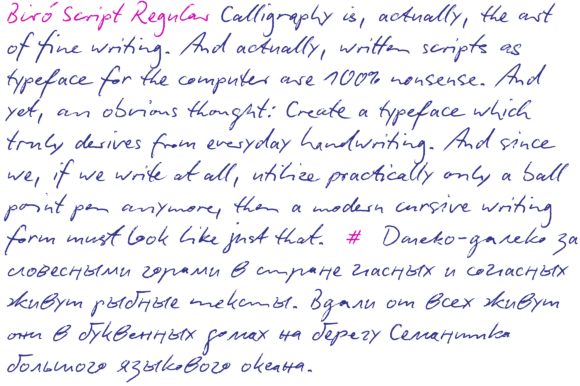 Biró Script Regular Calligraphy is, actually, the art
of fine writing. And actually, written scripts as
typeface for the computer are 100% nonsense. And
yet, an obvious thought: Create a typeface which
truly derives from everyday handwriting. And since
we, if we write at all, utilize practically only a ball
point pen anymore, then a modern cursive writing
form must look like just that. # Далеко-далеко за
словесными горами в стране гласных и согласных
живут рыбные тексты. Вдали от всех живут
они в буквенных домах на берегу Семантика
большого языкового океана.